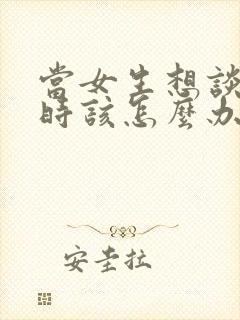 當女生想談
時該怎麼办
安圭拉